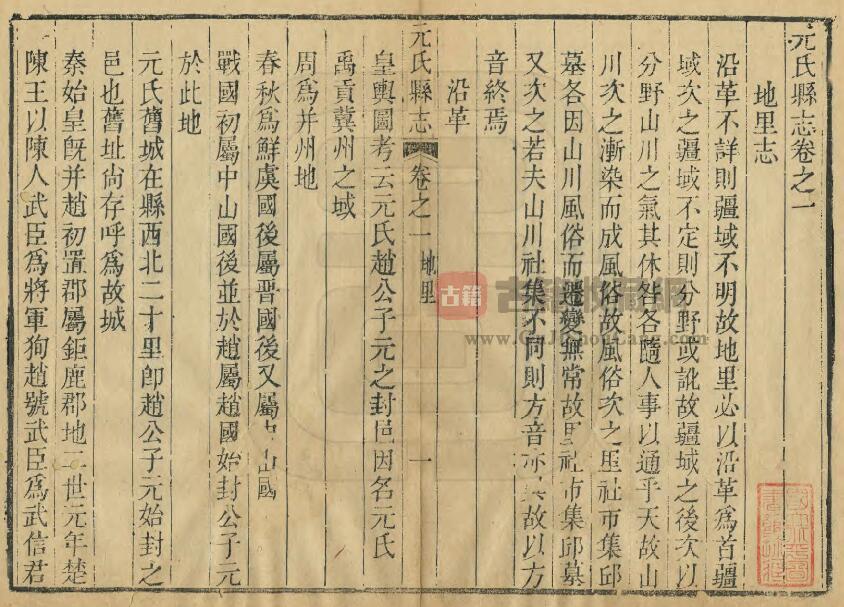 元氏縣志卷之一
地里志
沿革不詳則疆域不明故地里必以沿革爲首疆
域次之疆域不定則分野或訛故疆域之後次以
分野山川之氣其休咎各隨人事以通乎天故山
川次之漸染而成風俗故風俗次之里社市集邱
墓各因山川風俗而遷變無常故里社市集邱墓
又次之若夫山川社集不同則方音亦異故以方
音終焉
沿革
元氏縣志 卷之一 地里 一
皇輿圖考云元氏趙公子元之封邑因名元氏
禹貢冀州之域
周爲并州地
春秋爲鮮虞國後屬晋國後又屬中山國
戰國初屬中山國後並於趙屬趙國始封公子元
於此地
元氏舊城在縣西北二十里卽趙公子元始封之
邑也舊址尙存呼爲故城
秦始皇旣并趙初置郡屬鉅鹿郡地二世元年楚
陳王以陳人武臣爲將軍狥趙號武臣爲武信君
古籍
www.GuJiShouCang.com